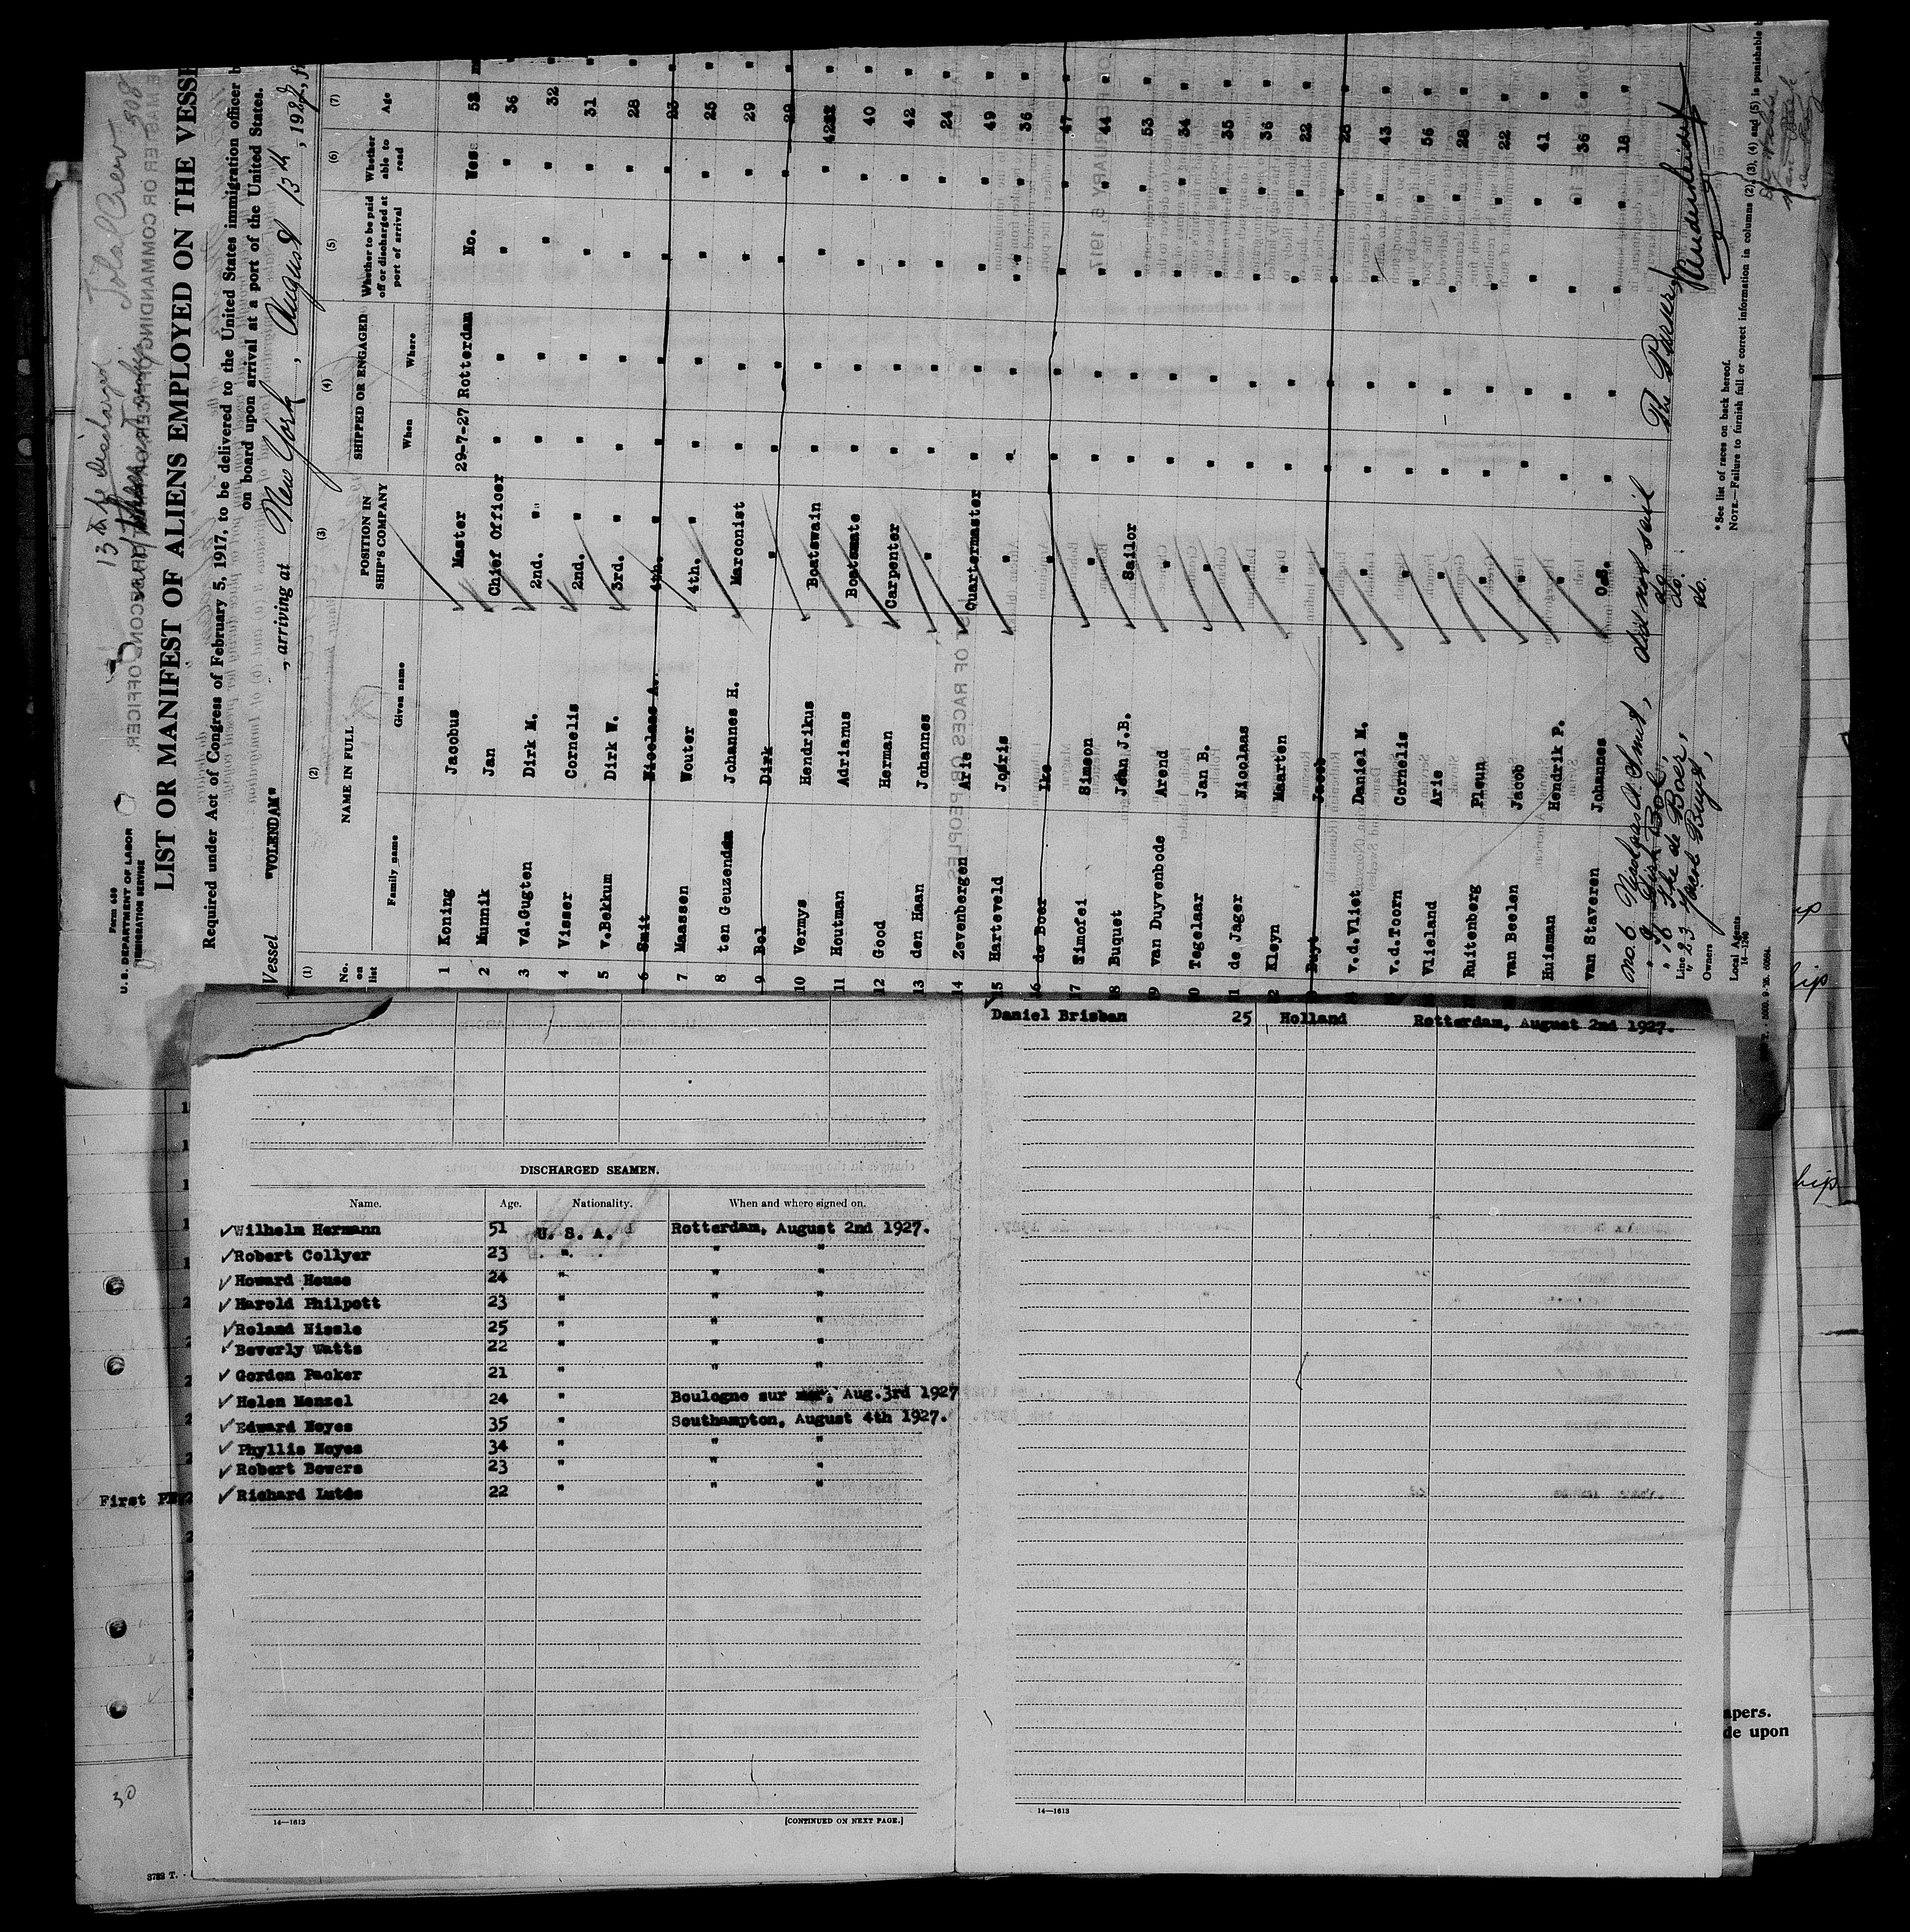 Form 689
U. S. DEPARTMENT OF LABOR
IMMIGRATION SERVICE
13 to be discharged
Total Crew 308
LIST OR MANIFEST OF ALIENS EMPLOYED ON THE VESSE
Required under Act of Congress of February 5, 1917, to be delivered to the United States immigration officer b
on board upon arrival at a port of the United States.
Vessel "VOLENDAM", arriving at New York, August 13th, 1927, f
(1) (2) (3) (4) (5) (6) (7)
No. on list NAME IN FULL POSITION IN SHIP'S COMPANY SHIPPED OR ENGAGED Whether to be paid off or discharged at port of arrival Whether able to read Age
Family name Given name When Where
1 Koning Jacobus Master 29-7-27 Rotterdam No. Yes 52
2 Munnik Jan Chief Officer " " " " 36
3 vd.Gugten Dirk M. 2nd. " " " " " 32
4 Visser Cornelis 2nd. " " " " " 31
5 v.Bekkum Dirk W. 3rd. " " " " " 28
6 Smit Nicolaas A. 4th. " " " " "
7 Maassen Wouter 4th. " " " " " 25
8 ten Geuzendam Johannes H. Marconist " " " " 29
9 Bol Dirk " " " " " 29
10 Vermys Hendrikus Boatswain " " " " 42
11 Houtman Adrianus Boatsmate " " " " 40
12 Good Herman Carpenter " " " " 42
13 den Haan Johannes " " " " " 24
14 Zevenbergen Arie Quartermaster " " " " 49
15 Harteveld Joris " " " " 36
16 de Boer Ike " " " " " 47
17 Simofei Simon " " " " " 44
18 Buquet Jean J.B. Sailor " " " " 53
19 van Duyvenbode Arend " " " " " 34
20 Tegelaar Jan B. " " " " " 35
21 de Jager Nicolaas " " " " " 36
22 Kleyn Maarten " " " " " 22
Buyt Jacob " " " " "
v.d.Vliet Daniel M. " " " " " 43
v.d.Toorn Cornelis " " " " " 56
Vlieland Arie " " " " " 28
Ruitenberg Pleun " " " " " 22
van Beelen Jacob " " " " " 41
Huisman Hendrik P. " " " " " 36
van Staveren Johannes O.S. " " " " 18
no. 6 Nicolaas A. Smit, did not sail
" 9 Dirk Bol, do.
" 16 Ike de Boer, do.
Line " 23 Jacob Buyt, do.
The Purser
Owners
Local Agents
14—1240
* See list of races on back hereof.
NOTE.—Failure to furnish full or correct information in columns (2), (3), (4) and (5) is punishable
Daniel Brisban 25 Holland Rotterdam, August 2nd 1927.
DISCHARGED SEAMEN.
Name. Age. Nationality. When and where signed on.
Wilhelm Hermann 51 U. S. A. Rotterdam, August 2nd 1927.
Robert Collyer 23 " " "
Howard House 24 " " "
Harold Philpott 23 " " "
Roland Nissle 25 " " "
Beverly Watts 22 " " "
Gordon Packer 21 " " "
Helen Menzel 24 " Boulogne sur mer, Aug.3rd 1927
Edward Noyes 35 " Southampton, August 4th 1927.
Phyllis Noyes 34 " " "
Robert Bowers 23 " " "
Richard Lutds 22 " " "
14—1613
[CONTINUED ON NEXT PAGE.]
14—1613
First
30
3732 T.
apers.
de upon
hip